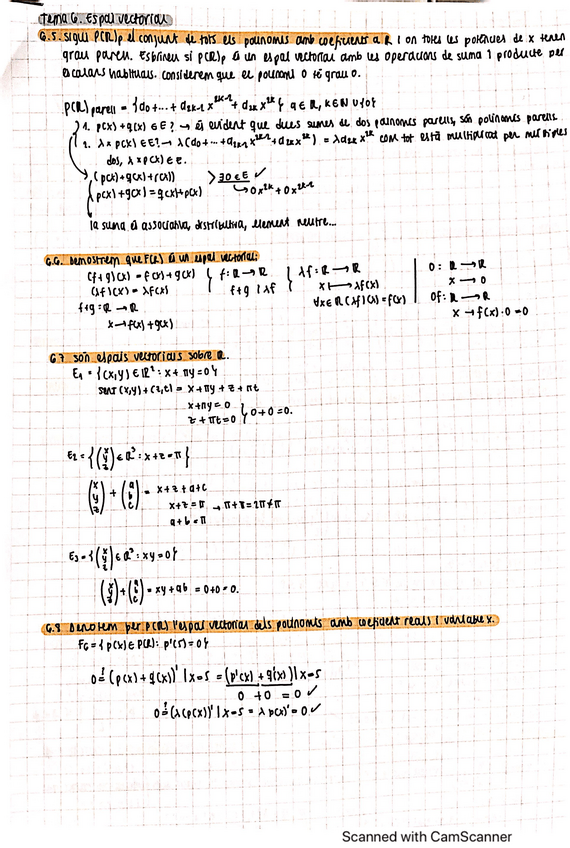 Tema 6. Espai vectorial
6.5. Sigui P(R)p el conjunt de tots els polinomis amb coeficients a R i on totes les potències de x tenen
grau parell. Esbrineu si P(R)p és un espai vectorial amb les operacions de suma i producte per
escalars habituals. Considerem que el polinomi 0 té grau 0.
P(R) parell = {a0+...+ a2k-2 x^2k-2 + a2k x^2k} a ∈ R, k ∈ N ∪ {0}
1. p(x) + q(x) ∈ E? → és evident que dues sumes de dos polinomis parells, són polinomis parells.
2. λ × p(x) ∈ E? → λ(a0+...+ x^2k-2 + a2k x^2k) = λa2k x^2k com tot està multiplicat per múltiples
dos, λ × p(x) ∈ E.
(p(x) + q(x) + r(x)) > 30 ∈ E ✓
p(x) + q(x) = q(x) + p(x) ↳ 0x^2k + 0x^2k-2
la suma és associativa, distributiva, element neutre...
6.6. Demostrem que F(R) és un espai vectorial:
(f+g)(x) = f(x) + g(x) { f: R → R { λf: R → R | 0: R → R
(λf)(x) = λf(x) f+g i λf x ↦ λf(x) x → 0
f+g: R → R ∀x ∈ R (λf)(x) = f(x) 0f: R → R
x → f(x) + g(x) x → f(x)·0 = 0
6.7 són espais vectorials sobre R.
E1 = {(x,y) ∈ R²: x + πy = 0}
(x,y) + (z,t) = x + πy + z + πt
x + πy = 0
z + πt = 0 } 0 + 0 = 0.
E2 = {(x y z) ∈ R³: x + z = π}
(x y z) + (a b c) = x + z + a + c
x + z = π → π + π = 2π ≠ π
a + b = π
E3 = {(x y z) ∈ R³: xy = 0}
(x y z) + (a b c) = xy + ab = 0 + 0 = 0.
6.8 Denotem per P(R) l'espai vectorial dels polinomis amb coeficient reals i variable x.
F6 = {p(x) ∈ P(R): p'(5) = 0}
0 = (p(x) + q(x))' | x=5 = (p'(x) + q'(x)) | x=5
0 + 0 = 0 ✓
0 = (λ(p(x))' | x=5 = λ p(x)' = 0 ✓
Scanned with CamScanner